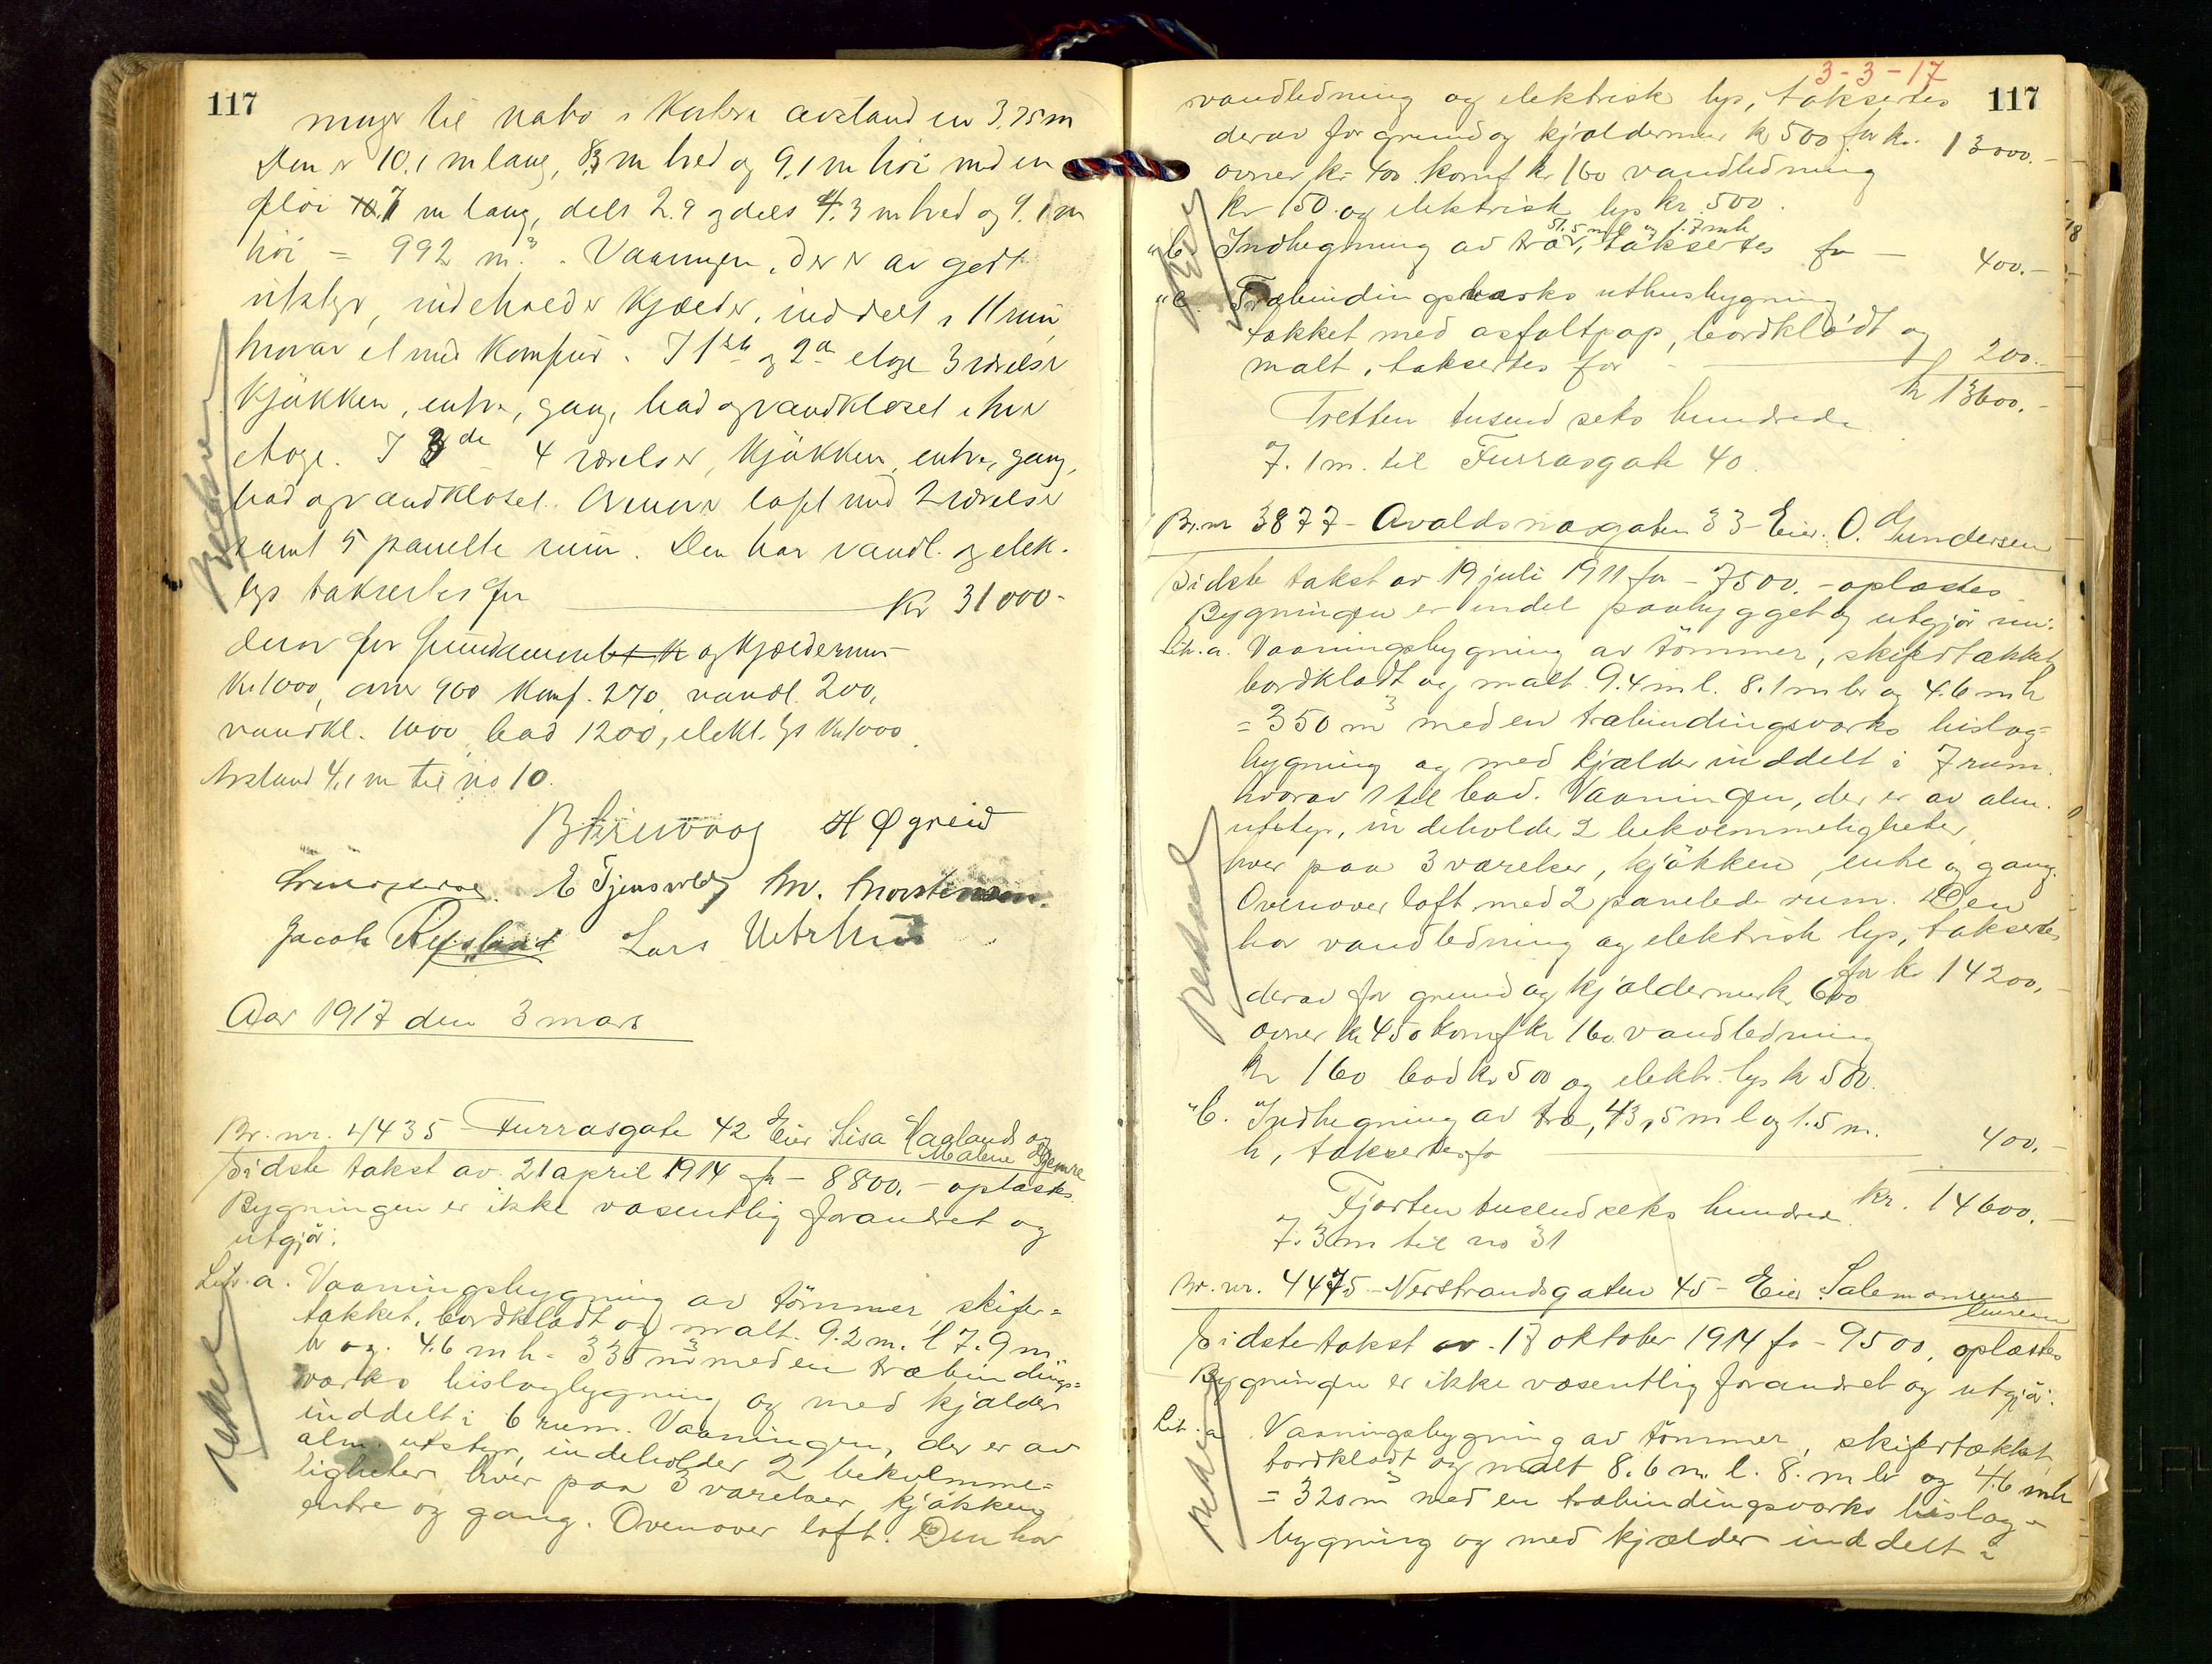 117
mur til nabo i korteste avstand en 3,75 m
Den er 10,1 m lang, 8,3 m bred og 9,1 m höi med en
flöi 7 m lang, dels 2.9 og dels 4.3 m bred og 9.1 m
höi = 992 m³. Vaaningen, der er av godt
utstyr, indeholder Kjælder, inddelt i 11 rum,
hvorav et med Komfur. I 1ste og 2den etage 3 værelser
Kjökken, entre, gang, bad og vandkloset i hver
etage. I 3de 4 værelser, Kjökken, entre, gang,
bad og vandkloset. Ovenover loft med 2 værelser
samt 5 panelte rum. Den har vandl. og elek.
lys takseres for Kr 31000-
derav for fundament og Kjældermur
Kr 1000, ovner 900 Komf. 270, vandl. 200,
vandkl. 1000 bad 1200, elekt. lys Kr 1000.
Avstand 4,1 m til no 10.
H Øgreid
E Tjensvold M. Mortensen.
Jacob Røysland Lars Vetrhus
Aar 1917 den 3 mars
Br. nr. 4435 Furrasgate 42 Eier Lisa Hagland og
Malene Djemre
Sidste takst av 21 april 1914 for - 8800.- oplæstes.
Bygningen er ikke væsentlig forandret og
utgjör:
Litr. a. Vaaningsbygning av tömmer, skifer=
tækket, bordklædt og malt. 9.2 m. l 7.9 m
br og. 4.6 m h = 335 m³ med en træbindings=
værks bislagbygning og med kjælder
inddelt i 6 rum. Vaaningen, der er av
alm. utstyr, indeholder 2 bekvemme=
ligheter hver paa 3 værelser, kjökken
entre og gang. Ovenover loft. Den har
3-3-17
117
vandledning og elektrisk lys, taksertes
derav for grund og kjældermur kr 500 for kr. 13000.-
ovner kr 400 komf kr 160 vandledning
kr 150 og elektrisk lys kr. 500.
51.5 m l og 1.7 m h
" b. Indhegning av træ, taksertes for - 400.-
" c. Træbindingsværks uthusbygning
tækket med asfaltpap, bordklædt og
malt, taksertes for 200.-
kr 13600.-
Tretten tusend seks hundrede
7.1 m. til Furrasgate 40.
Br. nr 3877 - Avaldsnæsgaten 33 - Eier. O. Gundersen
Sidste takst av 19 juli 1911 for - 7500.- oplæstes
Bygningen er endel paabygget og utgjör nu:
Litr. a. Vaaningsbygning av tömmer, skifertækket
bordklædt og malt. 9.4 m l. 8.1 m br og 4.6 m h
= 350 m³ med en træbindingsværks bislag=
bygning og med kjælder inddelt i 7 rum.
hvorav 1 til bad. Vaaningen, der er av alm.
utstyr, indeholder 2 bekvemmeligheter,
hver paa 3 værelser, kjökken, entre og gang.
Ovenover loft med 2 panelede rum. Den
har vandledning og elektrisk lys, taksertes
for kr 14200.-
derav for grund og kjældermur kr 600
ovner kr 450 komf kr 160. vandledning
kr 160 bad kr 500 og elektr. lys kr 500.
" b. Indhegning av træ, 43,5 m l og 1.5 m.
h, taksertes for 400.-
Kr. 14600.-
Fjorten tusend seks hundrede
7.3 m til no 31
Br. nr. 4475 - Nerstrandsgaten 45 - Eier Salemonsens
enke
Sidste takst av 17 oktober 1914 for - 9500, oplæstes
Bygningen er ikke væsentlig forandret og utgjör:
Litr. a. Vaaningsbygning av tömmer, skifertækket,
bordklædt og malt 8.6 m. l. 8. m br og 4.6 m h
= 320 m³ med en træbindingsværks bislag=
bygning og med kjælder inddelt i